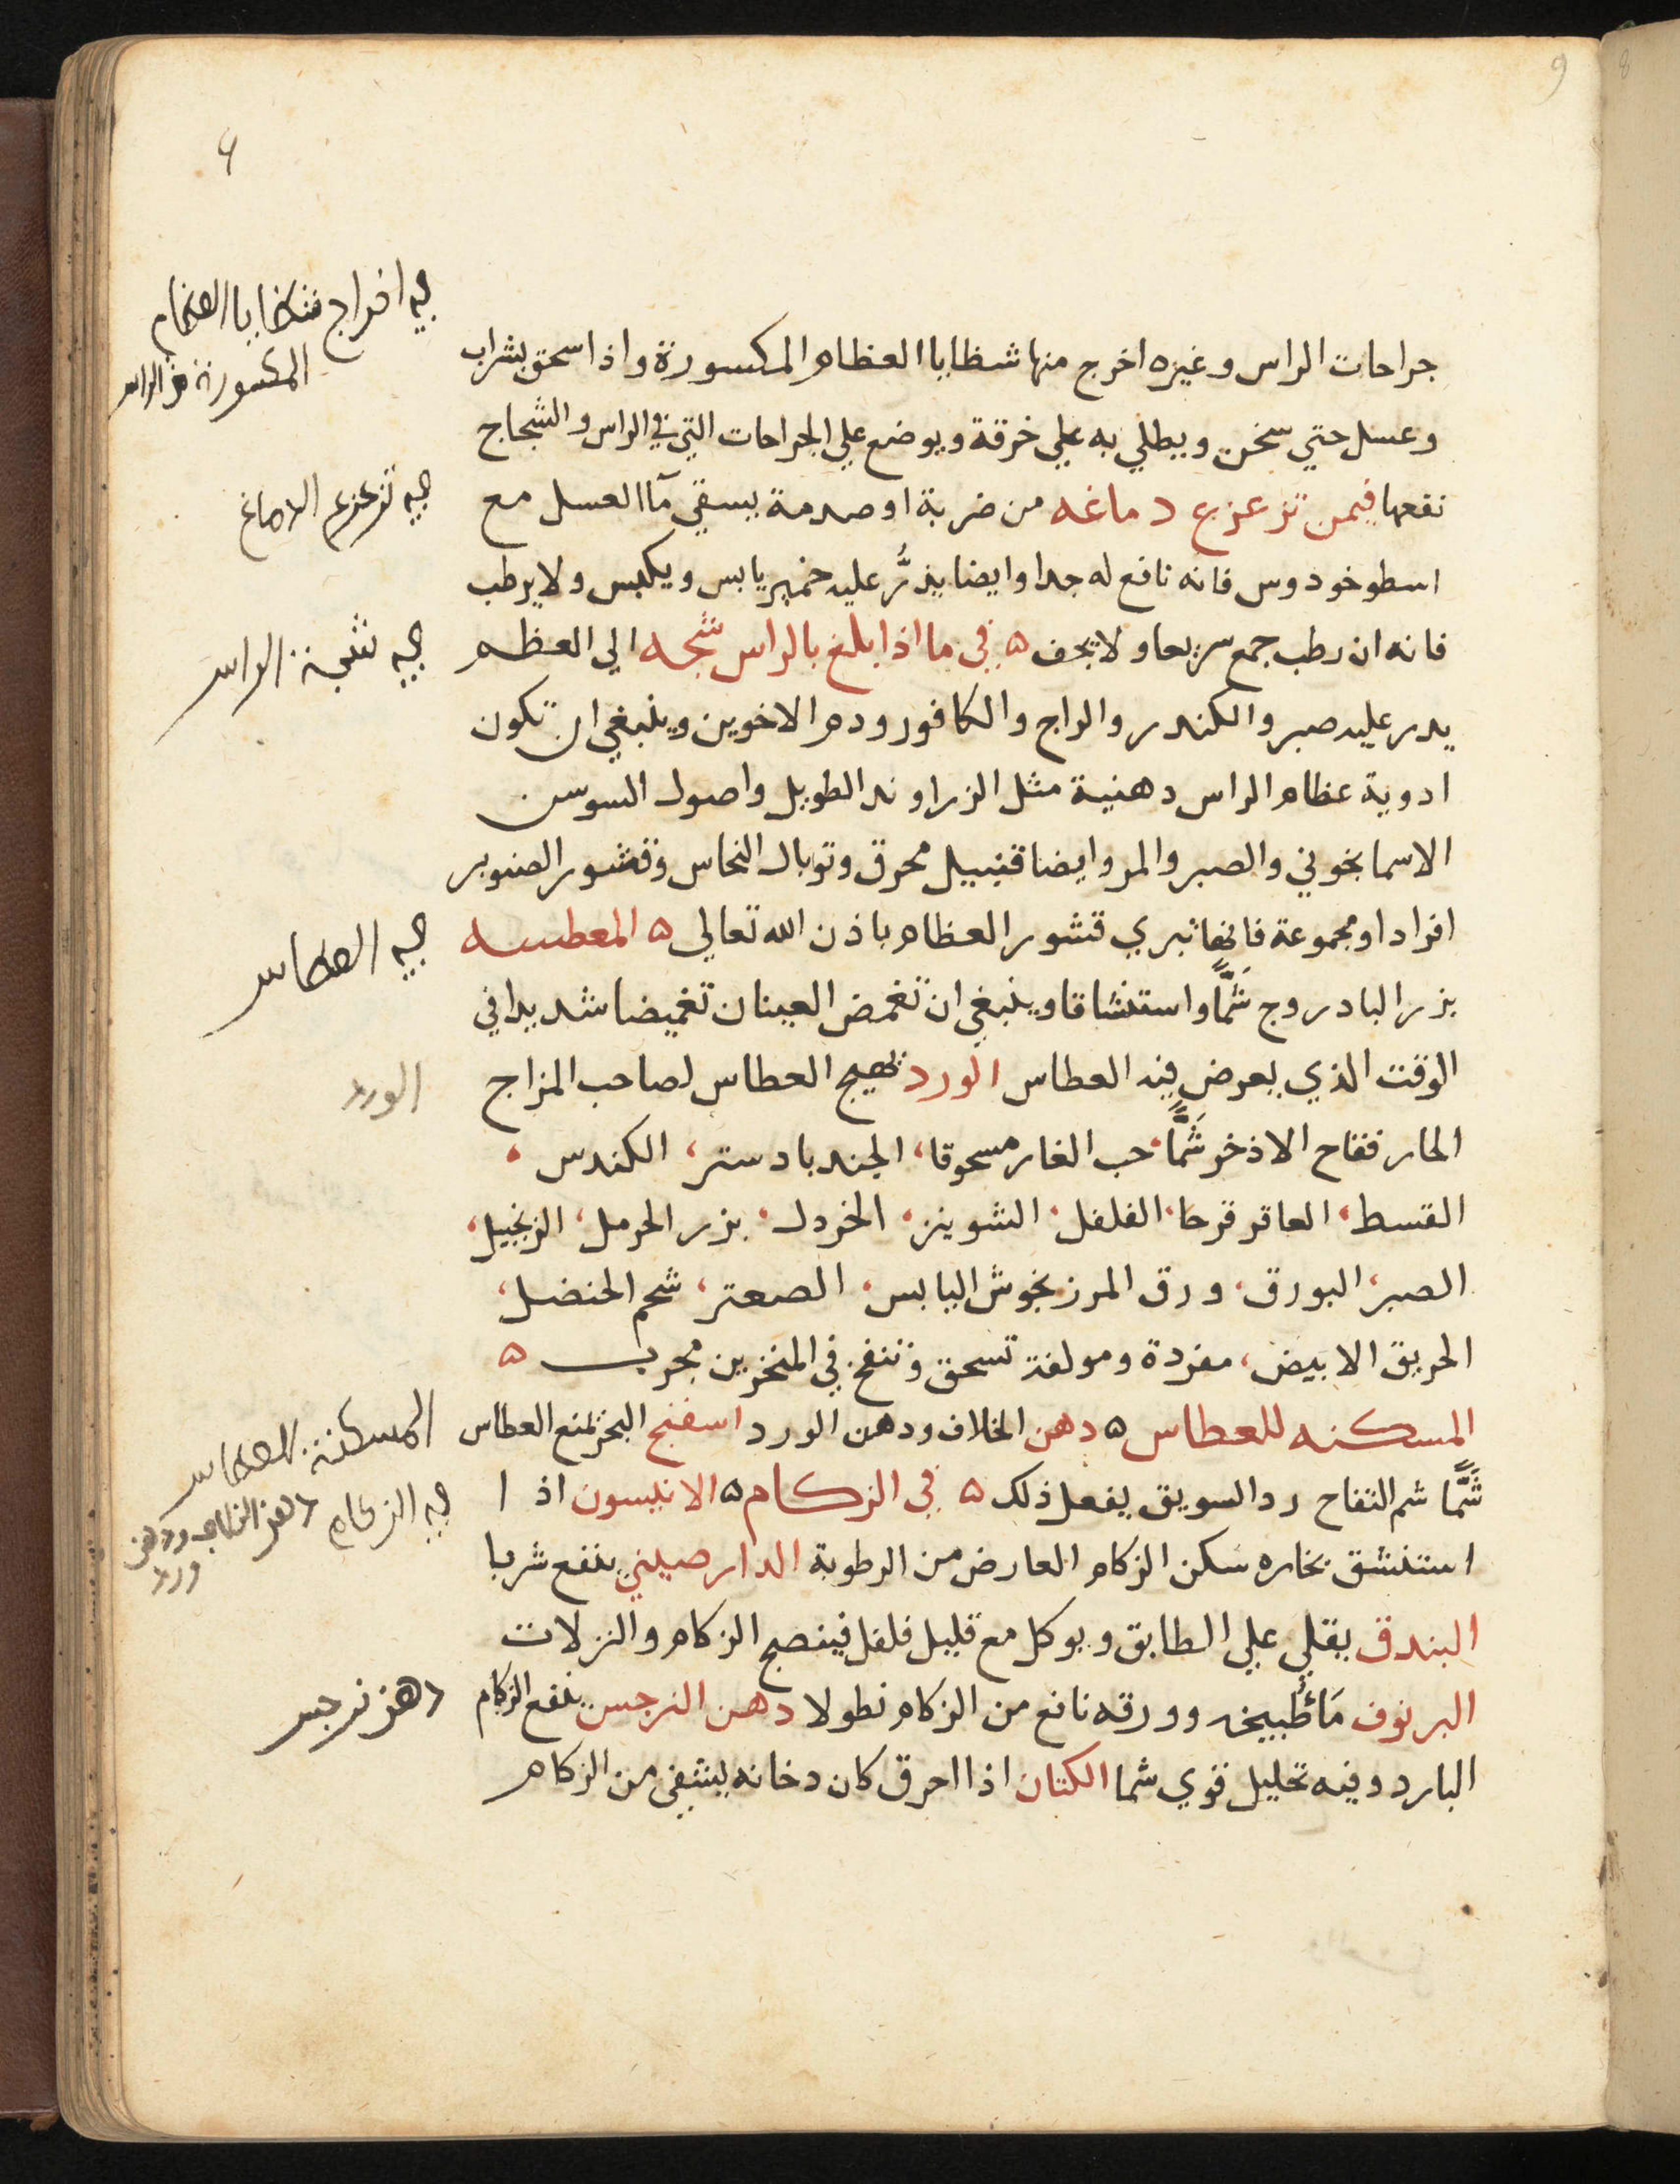 9
8
٩
جراحات الراس وغيره اخرج منها شظايا العظام المكسورة واذا سحق بشراب
وعسل حتي سخن ويطلي به علي خرقة ويوضع علي الجراحات التي في الراس والشجاج
نفعها فيمن تزعزع دماغه من ضربة او صدمة يسقي مآ العسل مع
اسطوخودوس فانه نافع له جدا وايضا يذرُّ عليه خمير يابس ويكبس ولا يرطب
فانه ان رطب جمع سريعا ولا يجف ٥ في ما اذا بلغ بالراس شجه الي العظم
يدر عليه صبر والكندر والراج والكافور ودم الاخوين وينبغي ان تكون
ادوية عظام الراس دهنية مثل الزراوند الطويل واصول السوسن
الاسمانجوني والصبر والمر وايضا قنبيل محرق وتوبال النحاس وقشور الصنوبر
افراد او مجموعة فانها تبري قشور العظام باذن الله تعالي ٥ المعطسه
بزر البادروج شَمًّا واستنشاقا وينبغي ان تغمض العينان تغميضا شديدا في
الوقت الذي يعرض فيه العطاس الورد يهيج العطاس لصاحب المزاج
الحار فقاح الاذخر شَمًّا، حب الغار مسحوقا، الجندبادستر، الكندس،
القسط، العاقر قرحا، الفلفل، الشونيز، الخردل، بزر الحرمل، الزنجبيل،
الصبر، البورق، ورق المرزنجوش اليابس، الصعتر، شحم الحنضل،
الحريق الابيض، مفردة ومولفة تسحق وتنفخ في المنخرين مجرب ٥
المسكنه للعطاس ٥ دهن الخلاف ودهن الورد اسفنج البحر يمنع العطاس
شَمًّا شم التفاح رد السويق يفعل ذلك ٥ في الزكام ٥ الانيسون اذا
استنشق بخاره سكن الزكام العارض من الرطوبة الدارصيني ينفع شربا
البندق يقلي علي الطابق ويوكل مع قليل فلفل فينضج الزكام والنزلات
البرنوف مَاءُ طبيخه وورقه نافع من الزكام نطولا دهن النرجس ينفع الزكام
البارد وفيه تحليل قوي شما الكتان اذا احرق كان دخانه يشفي من الزكام
في اخراج شظايا العظام
المكسورة من الراس
في تزعزع الدماغ
في شجة الراس
في العطاس
الورد
المسكنة للعطاس
في الزكام دهن الخلاف ودهن
ورد
دهن نرجس